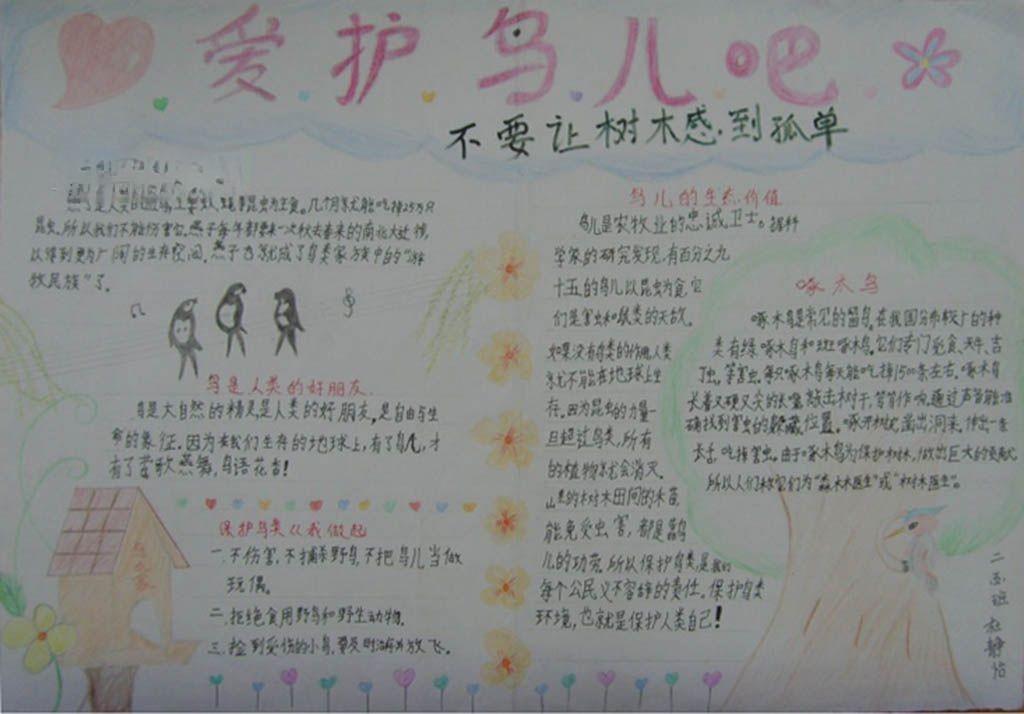 爱护鸟儿吧
不要让树木感到孤单
昆虫为主食。几个月就能吃掉25万只
昆虫。所以我们不能伤害它。燕子每年都要来一次秋去春来的南北大迁
以得到更为广阔的生存空间。燕子也就成了鸟类家族中的“游
牧民族”了。
鸟是人类的好朋友
鸟是大自然的精灵是人类的好朋友,是自由与生
命的象征。因为在我们生存的地球上,有了鸟儿,才
有了莺歌燕舞,鸟语花香!
保护鸟类从我做起
一.不伤害、不捕杀野鸟,不把鸟儿当做
玩偶。
二.拒绝食用野鸟和野生动物。
三.捡到受伤的小鸟,要及时治好并放飞。
鸟儿的生态价值
鸟儿是农牧业的忠诚卫士。据科
学家的研究发现,有百分之九
十五的鸟儿以昆虫为食,它
们是害虫和鼠类的天敌。
如果没有鸟类的作用,人类
就不能在地球上生
存。因为昆虫的力量一
旦超过鸟类,所有
的植物就会消灭。
山里的树木田间的禾苗
能免受虫害,都是鸟
儿的功劳。所以保护鸟类,是我们
每个公民义不容辞的责任。保护鸟类
环境,也就是保护人类自己!
啄木鸟
啄木鸟是常见的留鸟,在我国分布较广的种
类有绿啄木鸟和斑啄木鸟。它们专门觅食、天牛、吉
丁虫、等害虫,每只啄木鸟每天能吃掉1500条左右。啄木鸟
长着又硬又尖的长嘴,敲击树干,笃笃作响,通过声音能准
确找到害虫的躲藏位置。啄开树 凿出洞来,伸出一条
长舌,吃掉害虫。由于啄木鸟为保护树林,做出巨大的贡献,
所以人们称它们为“森林医生”或“树木医生”。
二 班
杜静怡